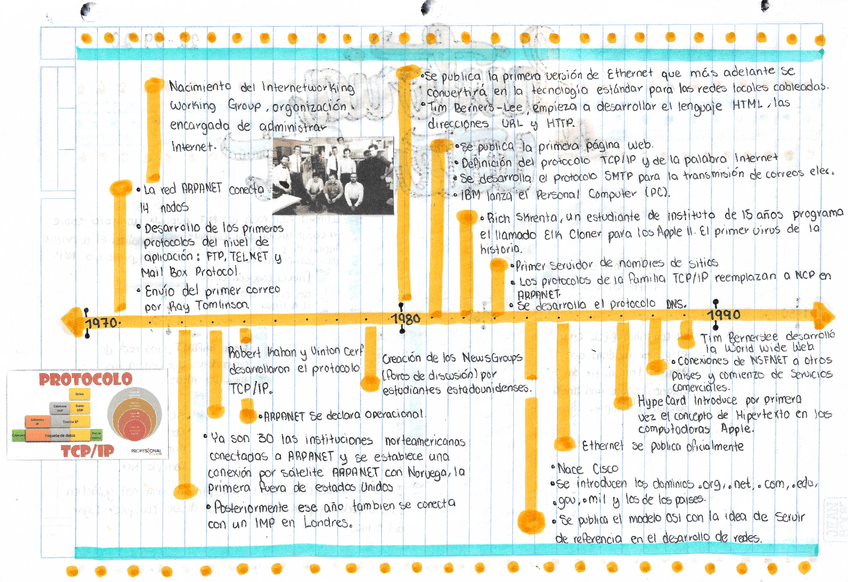 Nacimiento del Internetworking
Working Group, organización
encargado de administrar
Internet.
• La red ARPANET conecta
14 nodos
• Desarrollo de los primeros
protocolos del nivel de
aplicación: FTP, TELNET y
Mail Box Protocol.
• Envío del primer correo
por Ray Tomlinson
• Se publica la primera versión de Ethernet que más adelante se
convertirá en la tecnología estándar para las redes locales cableadas.
• Tim Berners-Lee, empieza a desarrollar el lenguaje HTML, las
direcciones URL y HTTP.
• Se publica la primera página web.
• Definición del protocolo TCP/IP y de la palabra Internet
• Se desarrolla el protocolo SMTP para la transmisión de correos elec.
• IBM lanza el Personal Computer (PC).
• Rich Skrenta, un estudiante de instituto de 15 años programa
el llamado Elk Cloner para los Apple II. El primer virus de la
historia.
• Primer servidor de nombres de sitios
• Los protocolos de la familia TCP/IP reemplazan a NCP en
ARPANET.
• Se desarrolla el protocolo DNS.
1970
1980
1990
Robert Kahan y Vinton Cerf
desarrollaron el protocolo
TCP/IP.
• ARPANET se declara operacional.
• Ya son 30 las instituciones norteamericanas
conectadas a ARPANET y se establece una
conexión por satélite ARPANET con Noruega, la
primera fuera de estados Unidos
• Posteriormente ese año tambien se conecta
con un IMP en Londres.
Creación de los NewsGroups
(Foros de discusión) por
estudiantes estadounidenses.
Tim Bernerslee desarrolló
la World Wide Web
• Conexiones de NSFNET a otros
países y comienzo de Servicios
comerciales.
HyperCard Introduce por primera
vez el concepto de Hipertexto en las
computadoras Apple.
Ethernet se publica oficialmente
• Nace Cisco
• Se introducen los dominios .org, .net, .com, .edu,
.gov, .mil y los de los paises.
• Se publica el modelo OSI con la idea de servir
de referencia en el desarrollo de redes.
PROTOCOLO
TCP/IP